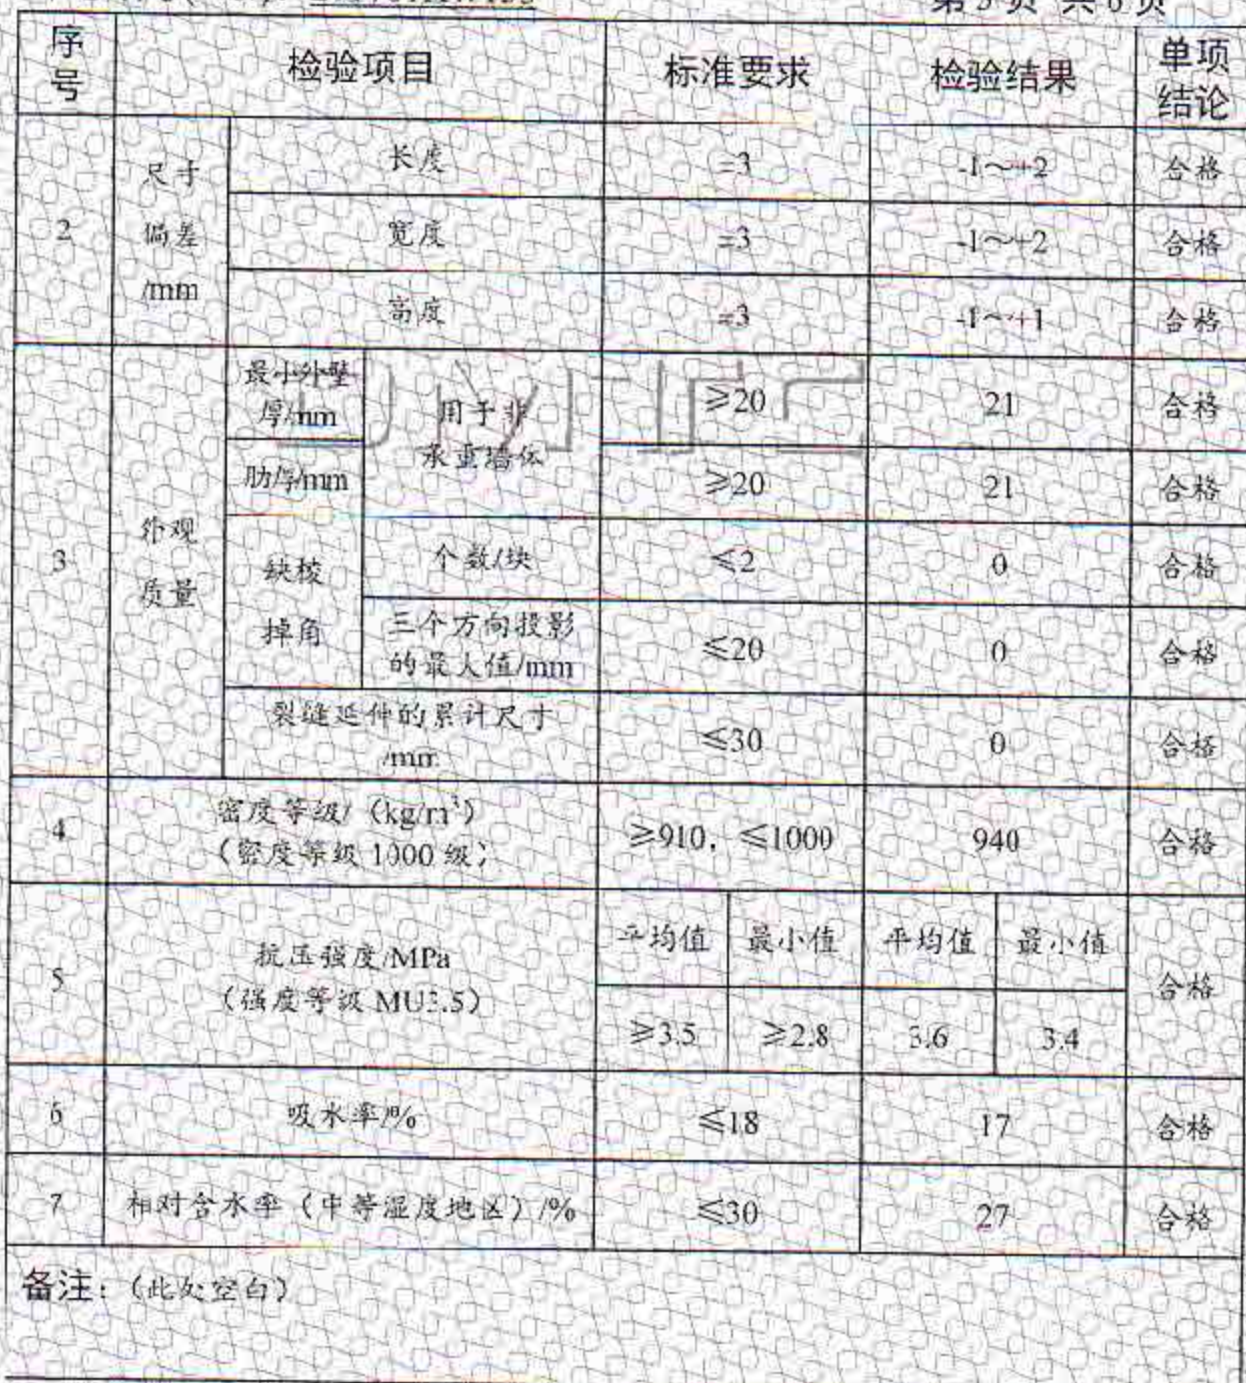 第5页 共6页
序号 检验项目 标准要求 检验结果 单项结论
2 尺寸偏差/mm 长度 =3 -1～+2 合格
宽度 =3 -1～+2 合格
高度 =3 -1～+1 合格
3 外观质量 最小外壁厚/mm 用于非承重墙体 ≥20 21 合格
肋厚/mm ≥20 21 合格
缺棱掉角 个数/块 ≤2 0 合格
三个方向投影的最大值/mm ≤20 0 合格
裂缝延伸的累计尺寸/mm ≤30 0 合格
4 密度等级/（kg/m³）（密度等级 1000 级） ≥910，≤1000 940 合格
5 抗压强度/MPa（强度等级 MU3.5） 平均值 最小值 平均值 最小值 合格
≥3.5 ≥2.8 3.6 3.4
6 吸水率/% ≤18 17 合格
7 相对含水率（中等湿度地区）/% ≤30 27 合格
备注：（此处空白）